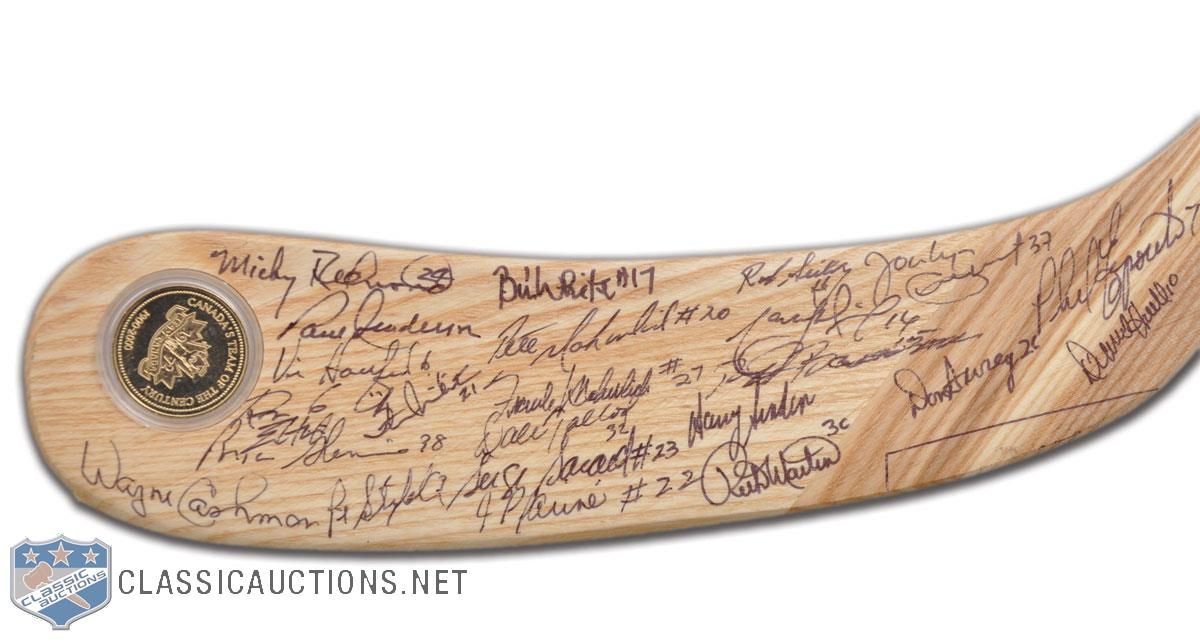 Micky Redmond 24
Bill White #17
Rod Seiling 16
Jocelyn Guevremont 37
Phil Esposito 7
Paul Henderson
Pete Mahovlich #20
14
Vic Hadfield
Frank Mahovlich #27
Don Awrey 26
Dennis Hull 10
21
Dale Tallon 32
Harry Sinden
Brian Glennie 38
Serge Savard #23
Rick Martin 36
Wayne Cashman
Pat Stapleton
#22
CANADA'S TEAM OF THE CENTURY
1900-2000
CLASSIC
AUCTIONS
CLASSICAUCTIONS.NET